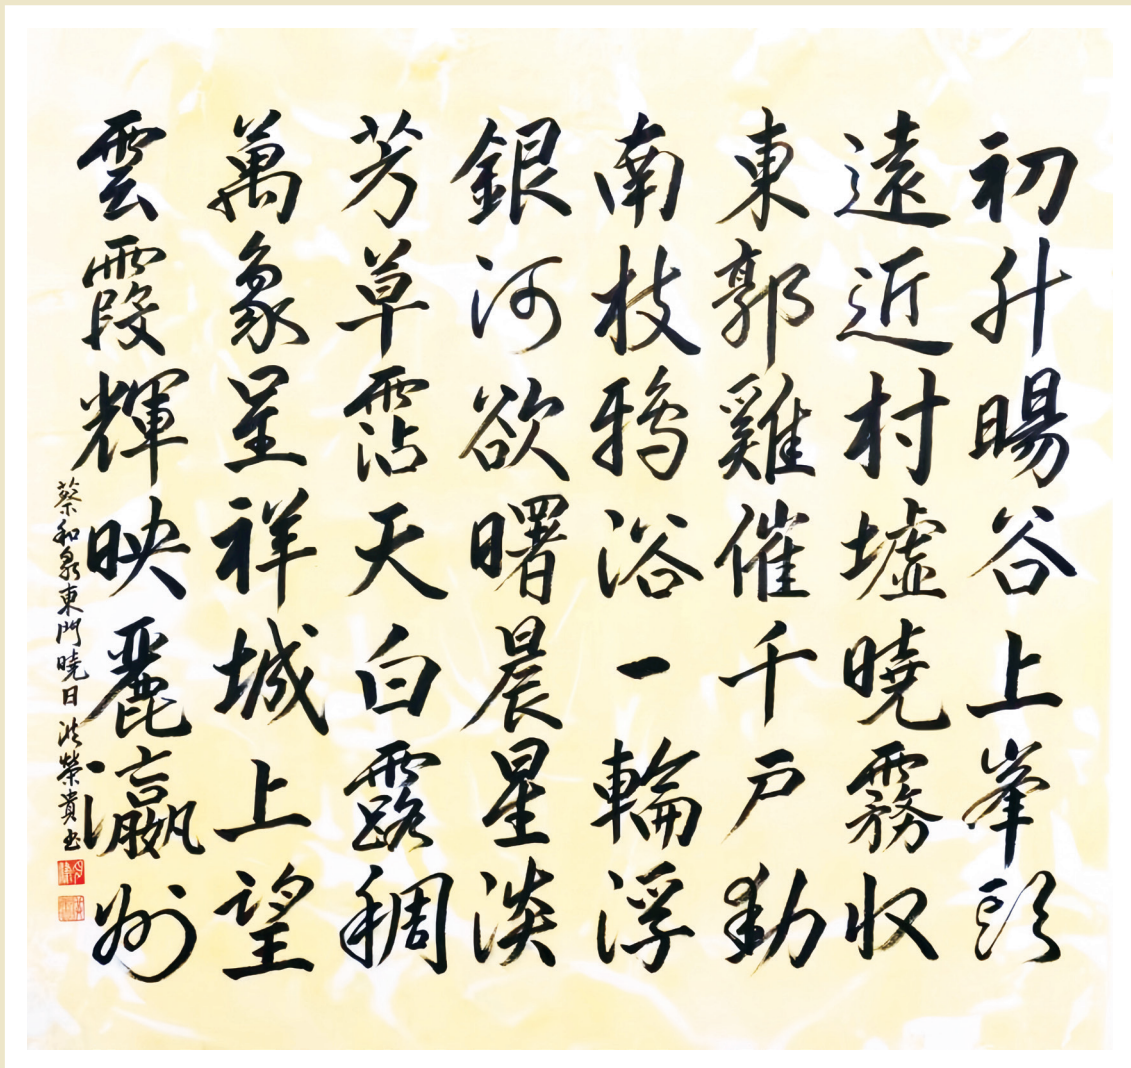 初升暘谷上峯頭
遠近村墟曉霧收
東郭雞催千戶動
南枝鴉浴一輪浮
銀河欲曙晨星淡
芳草霑天白露稠
萬象呈祥城上望
雲霞輝映麗瀛州
蔡和泉東門曉日 洪榮貴书